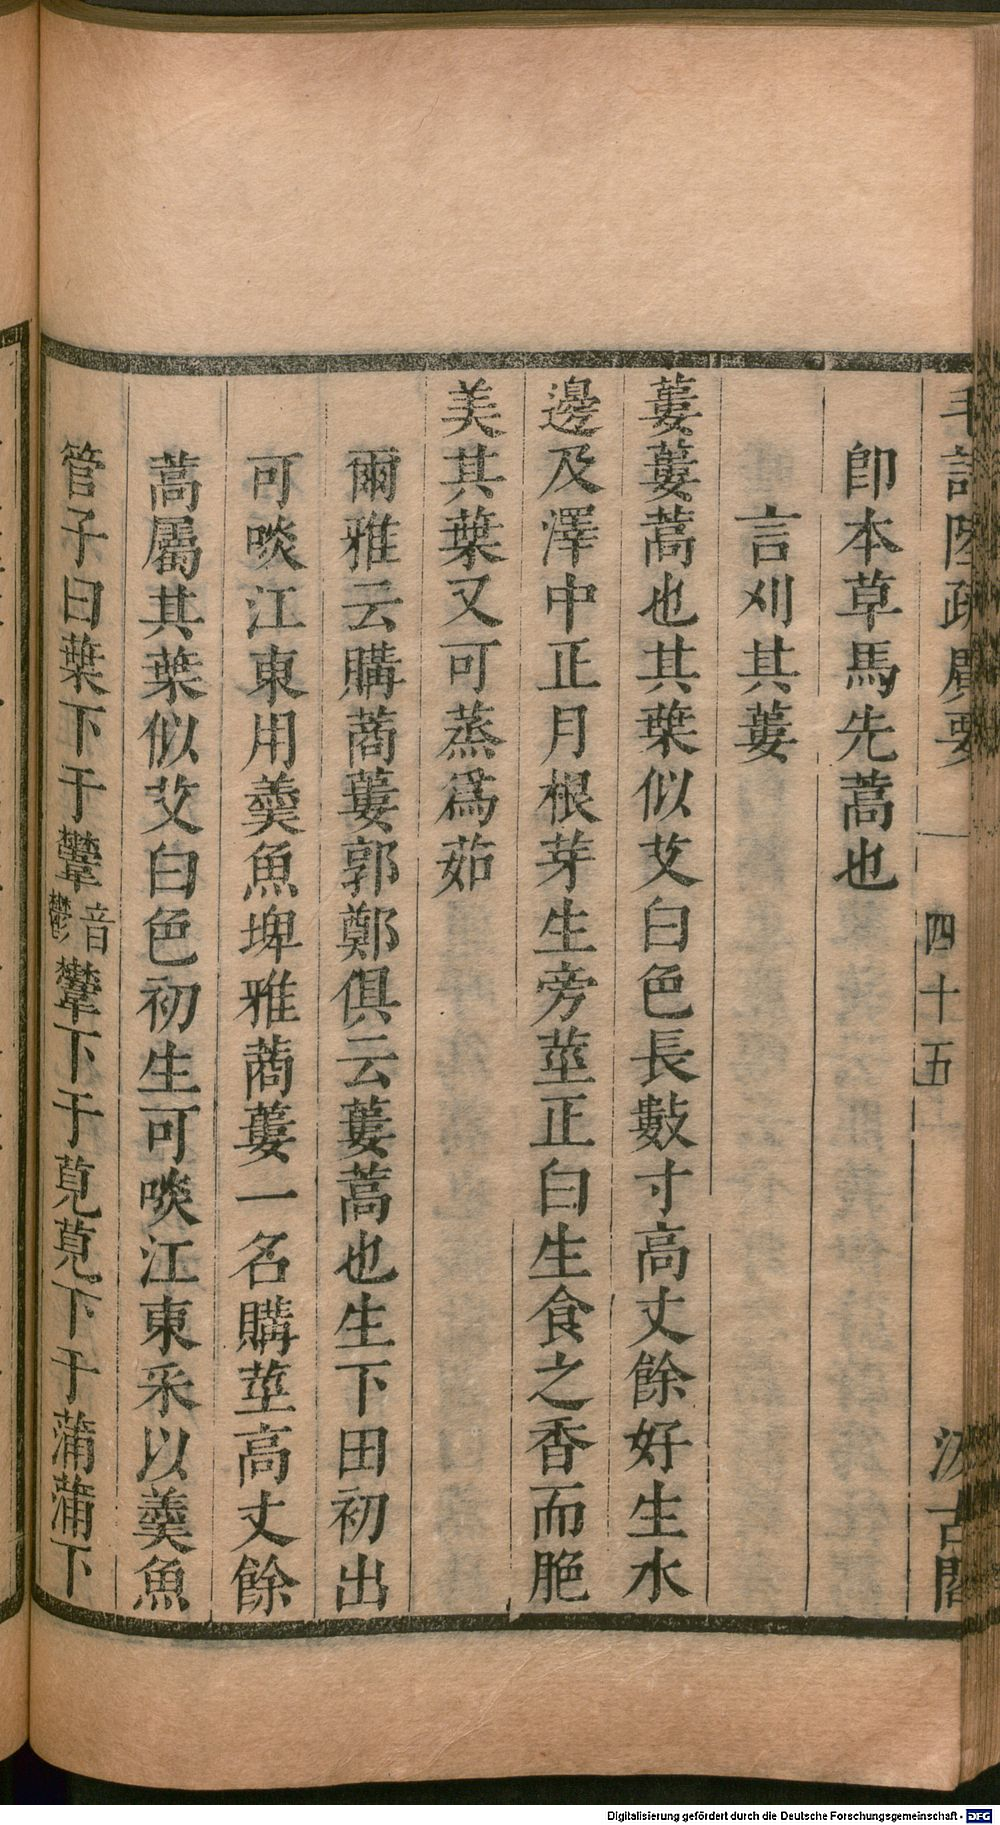 毛詩陸疏廣要 四十五 汲古閣
卽本草馬先蒿也
言刈其蔞
蔞蔞蒿也其葉似艾白色長數寸高丈餘好生水
邊及澤中正月根芽生旁莖正白生食之香而脆
美其葉又可蒸爲茹
爾雅云購蔏蔞郭鄭俱云蔞蒿也生下田初出
可啖江東用羹魚埤雅蔏蔞一名購莖高丈餘
蒿屬其葉似艾白色初生可啖江東采以羹魚
管子曰葉下于虆音鬱虆下于莧莧下于蒲蒲下
Digitalisierung gefördert durch die Deutsche Forschungsgemeinschaft - DFG